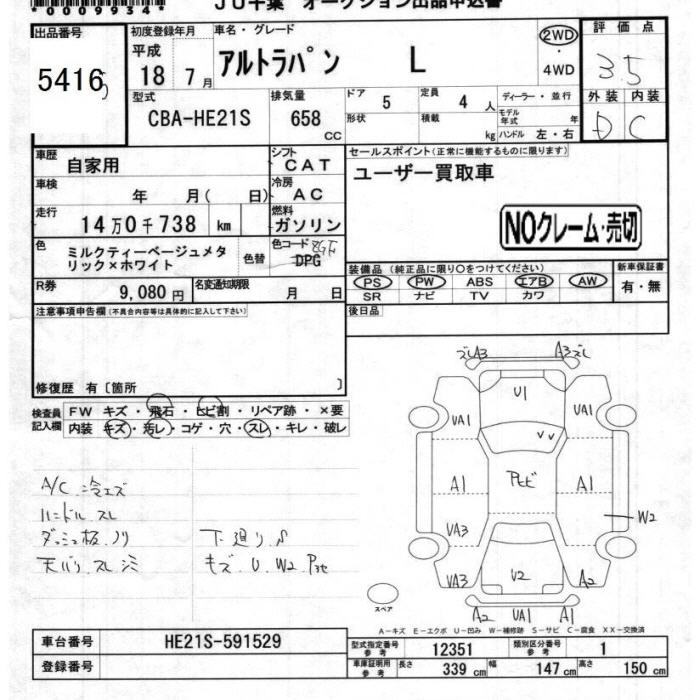 *0009934*
JU千葉 オークション出品申込書
出品番号 初度登録年月 車名・グレード 評価点
5416 平成 18年 7月 アルトラパン L 2WD・4WD 3.5
型式 排気量 ドア 定員 ディーラー・並行 外装 内装
CBA-HE21S 658 CC 5 4人 D C
形状 積載 kg モデル年式 年 ハンドル 左・右
車歴 自家用 シフト CAT セールスポイント(正常に機能するものに限ります)
車検 年 月( 日) 冷房 AC ユーザー買取車
走行 14万0千738 km 燃料 ガソリン NOクレーム・売切
色 ミルクティーベージュメタリック×ホワイト 色替 色コード DPG
装備品 (純正品に限り○をつけてください) 新車保証書
PS PW ABS エアB AW 有・無
SR ナビ TV カワ
R券 9,080円 名変通知期限 月 日
注意事項申告欄(不具合内容等は具体的に記入して下さい) 後日品
修復歴 有〔箇所 〕
検査員記入欄 FW キズ・飛石・ヒビ割・リペア跡・×要
内装 キズ・汚レ・コゲ・穴・スレ・キレ・破レ
ズレA3 A3ズレ
U1
UA1 UA1
VV
A1 Pヒビ A1
W2
VA3
VA3 V2 A2
A2 UA1 A1
スペア
A/C 冷エズ
ハンドル スレ
ダッシュ板 ノリ 下廻り S
天バリ スレ シミ キズ U W2
A-キズ E-エクボ U-凹み W-補修跡 S-サビ C-腐食 XX-交換済
車台番号 HE21S-591529
登録番号
型式指定番号 参考 12351 類別区分番号 参考 1
車庫証明用 参考 長さ 339 cm 幅 147 cm 高さ 150 cm